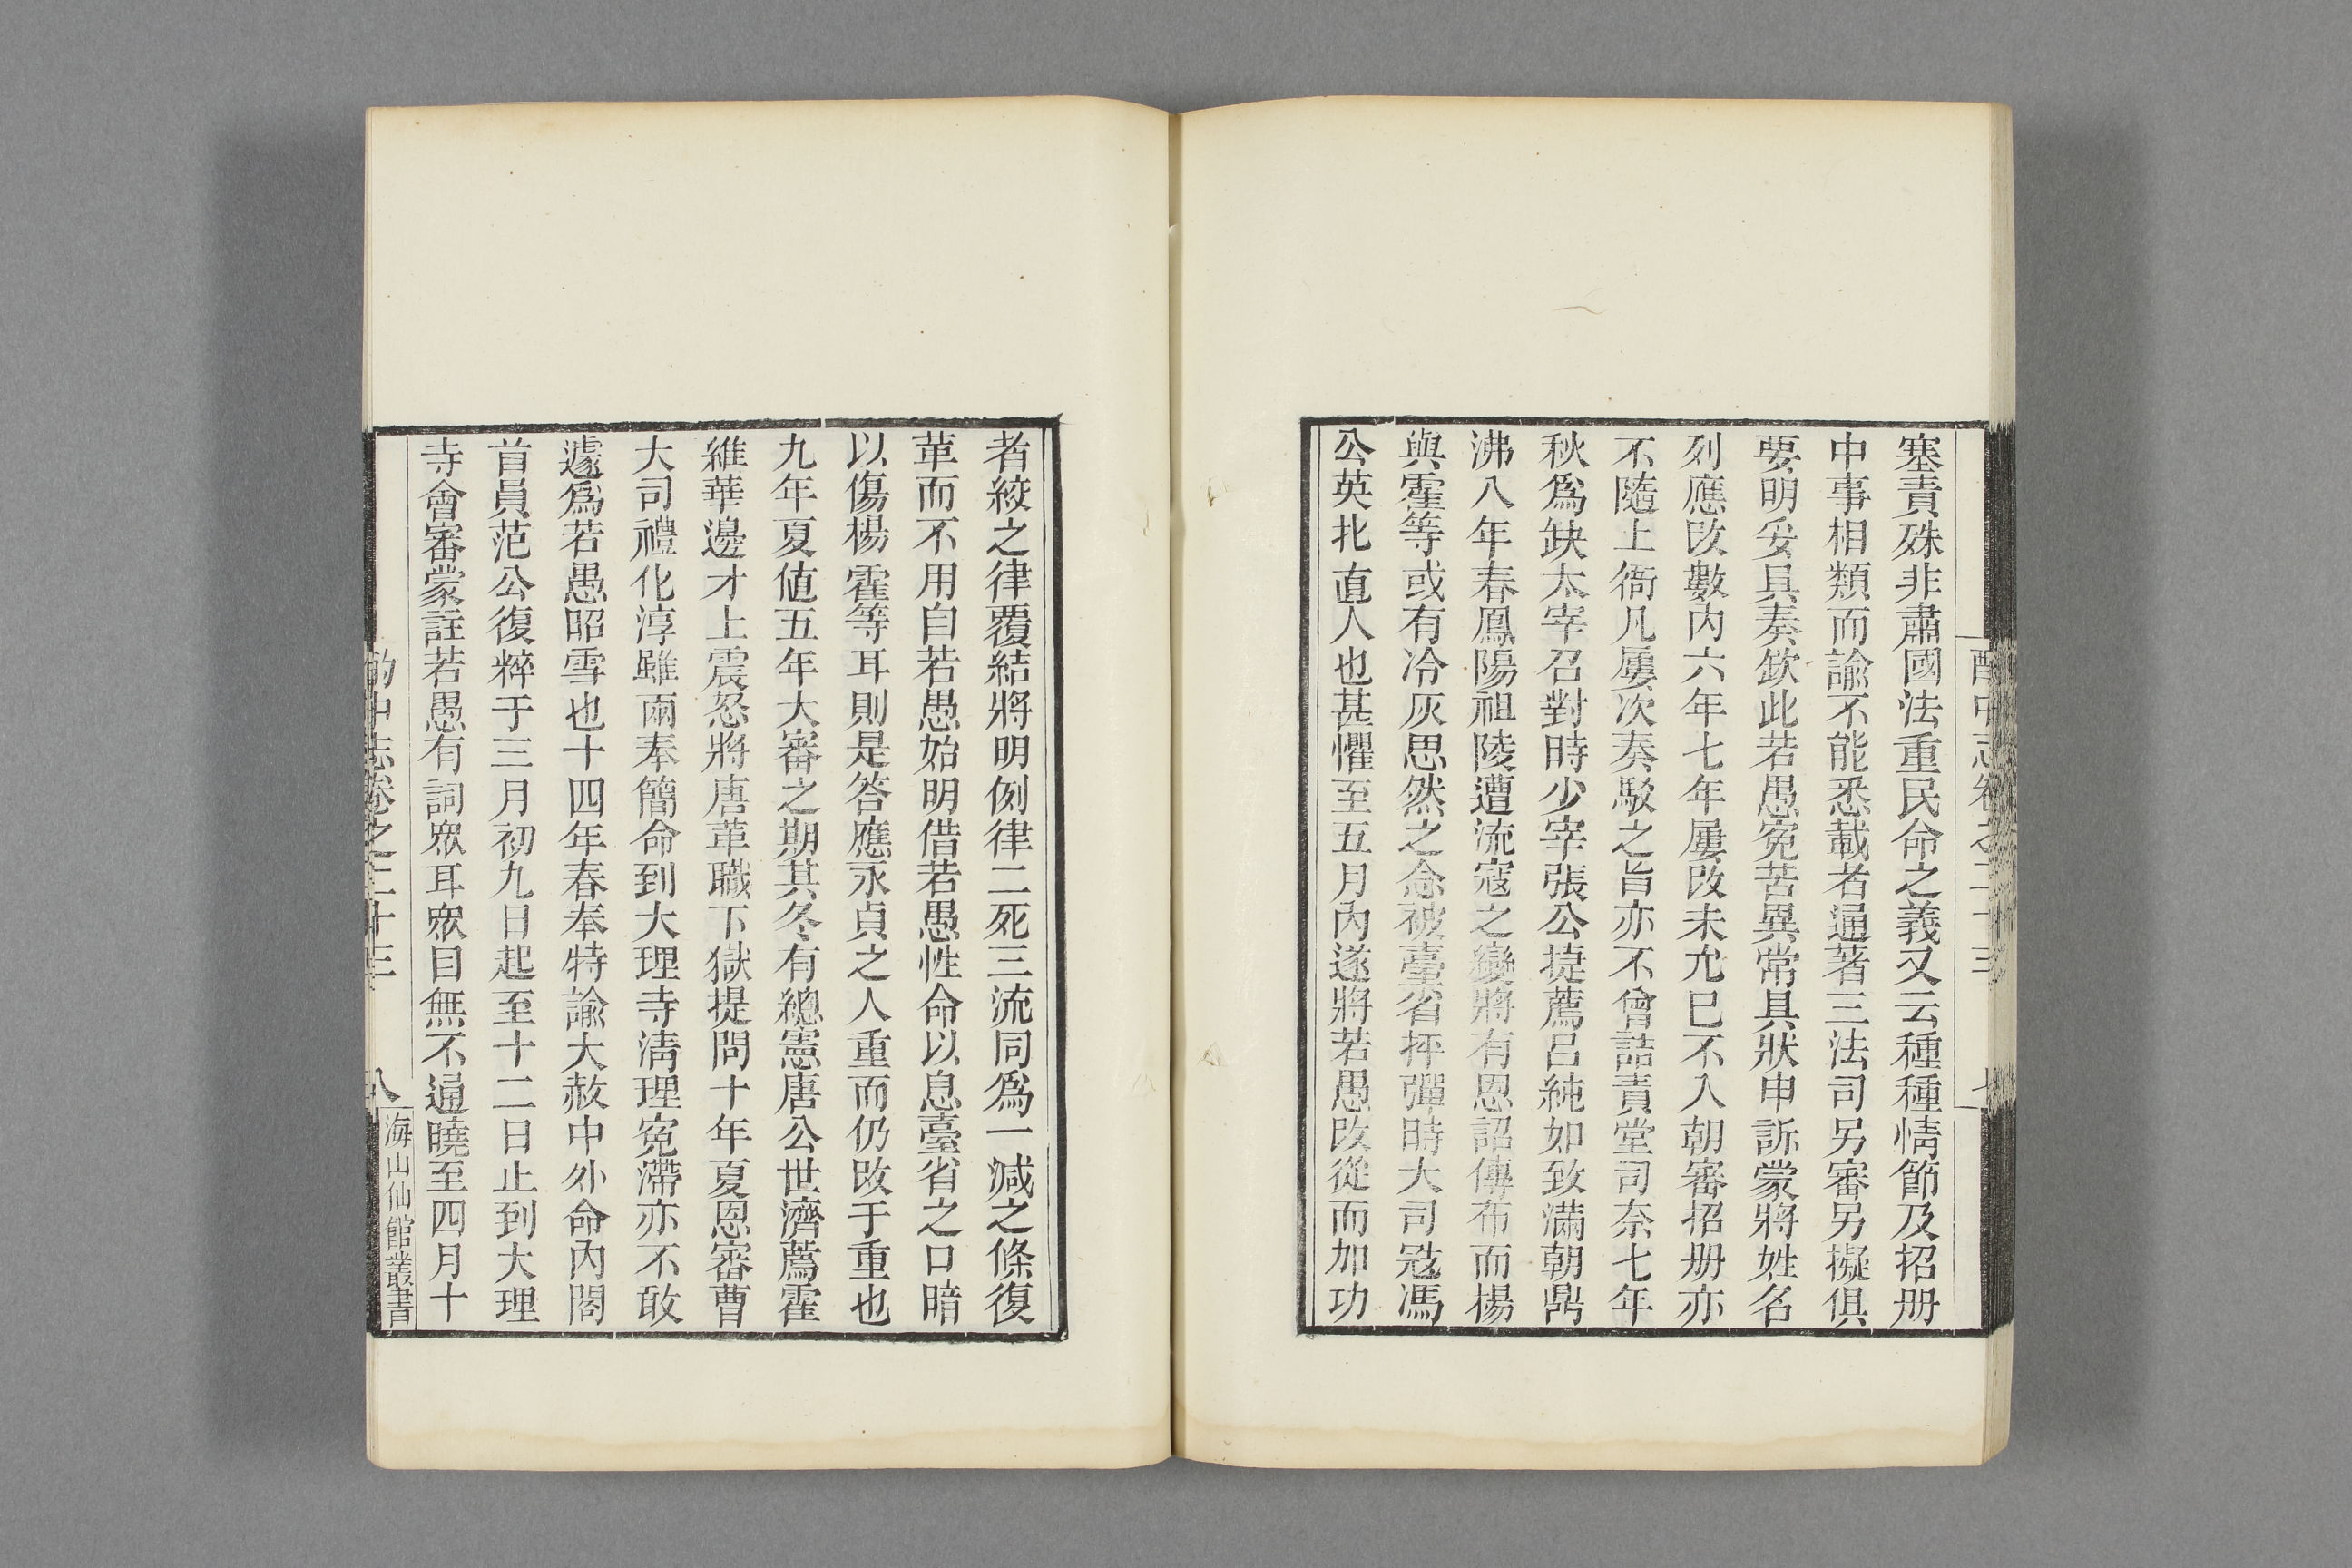 酌中志卷之二十三
塞責殊非肅國法重民命之義又云種種情節及招册
中事相類而諭不能悉載者通著三法司另審另擬俱
要明妥具奏欽此若愚寃苦異常具狀申訴蒙將姓名
列應改數内六年七年屢改未允已不入朝審招册亦
不隨上衙凡屢次奏駁之旨亦不曾詰責堂司奈七年
秋爲缺太宰召對時少宰張公捷薦呂純如致滿朝鼎
沸八年春鳳陽祖陵遭流寇之變將有恩詔傳布而楊
與霍等或有冷灰思然之念被臺省抨彈時大司宼馮
公英北直人也甚懼至五月内遂將若愚改從而加功
者絞之律覆結將明例律二死三流同爲一減之條復
革而不用自若愚始明借若愚性命以息臺省之口暗
以傷楊霍等耳則是答應永貞之人重而仍改于重也
九年夏値五年大審之期其冬有總憲唐公世濟薦霍
維華邊才上震怒將唐革職下獄提問十年夏恩審曹
大司禮化淳雖面奉簡命到大理寺清理寃滯亦不敢
遽爲若愚昭雪也十四年春奉特諭大赦中外命内閣
首員范公復粹于三月初九日起至十二日止到大理
寺會審蒙註若愚有詞衆耳衆目無不通曉至四月十
酌中志卷之二十三
八
海山仙館叢書